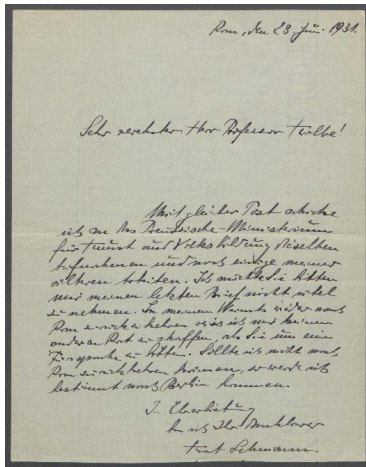 Rom, den 23. Juni 1931.
Sehr verehrter Herr Professor Kolbe!
Mit gleicher Post schicke
ich an das Preussische Ministerium
für Kunst und Volksbildung dieselben
Aufnahmen und noch einige meiner
älteren Arbeiten. Ich möchte Sie bitten
mir meinen letzten Brief nicht übel
zu nehmen. In meinem Wunsch wieder nach
Rom zurückzukehren weiss ich mir keinen
anderen Rat zu schaffen, als Sie um eine
Fürsprache zu bitten. Sollte ich nicht nach
Rom zurückkehren können, so werde ich
bestimmt nach Berlin kommen.
In Ehrerbietung
bin ich Ihr dankbarer
Kurt Lehmann.